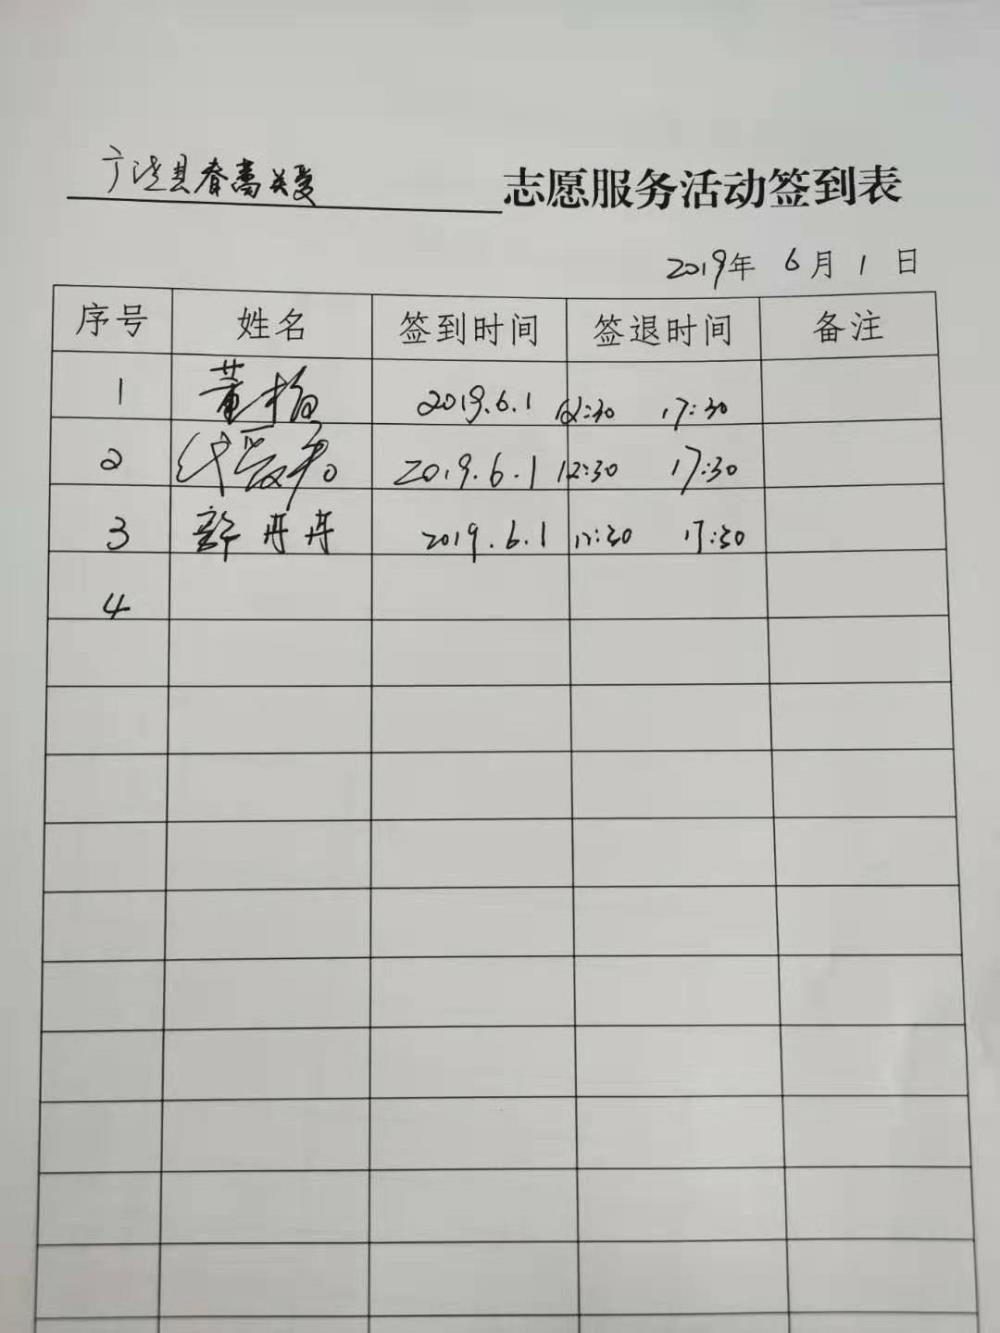 宁陵县春蒿关爱 志愿服务活动签到表
2019年 6月 1日
序号 姓名 签到时间 签退时间 备注
1 董 2019.6.1 12:30 17:30
2 2019.6.1 12:30 17:30
3 丹丹 2019.6.1 12:30 17:30
4